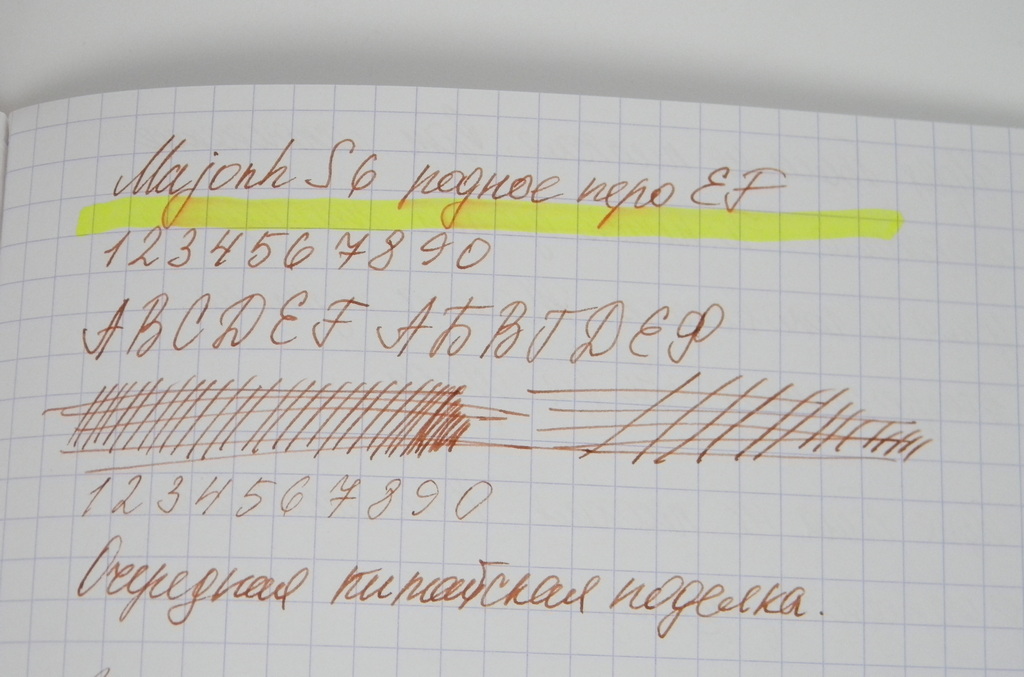 Majohn S6 родное перо EF
1 2 3 4 5 6 7 8 9 0
A B C D E F А Б В Г Д Е Ф
1 2 3 4 5 6 7 8 9 0
Очередная китайская поделка.